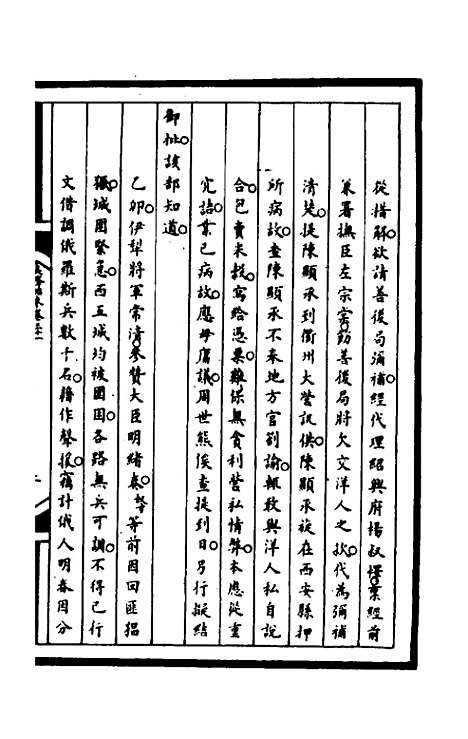 從措解。欲請善後局彌補。經代理紹興府楊叔懌稟。經前
兼署撫臣左宗棠。飭善後局將欠交洋人之款。代為彌補
清楚。提陳顯承到衢州大營訊供。陳顯承旋在西安縣押
所病故。查陳顯承不來地方官劄諭。輒敢與洋人私自說
合。包賣米榖。寫給憑票。難保無貪利營私情弊。本應從重
究詰。業已病故。應毋庸議。周世熊俟查提到日。另行擬結
御批該部知道。
乙卯。伊犁將軍常清。參贊大臣明緒奏。等前因回匪猖
獗。城圍緊急。西五城均被圍困。各路無兵可調。不得已行
文借調俄羅斯兵數千名。藉作聲援。竊計俄人明春因分